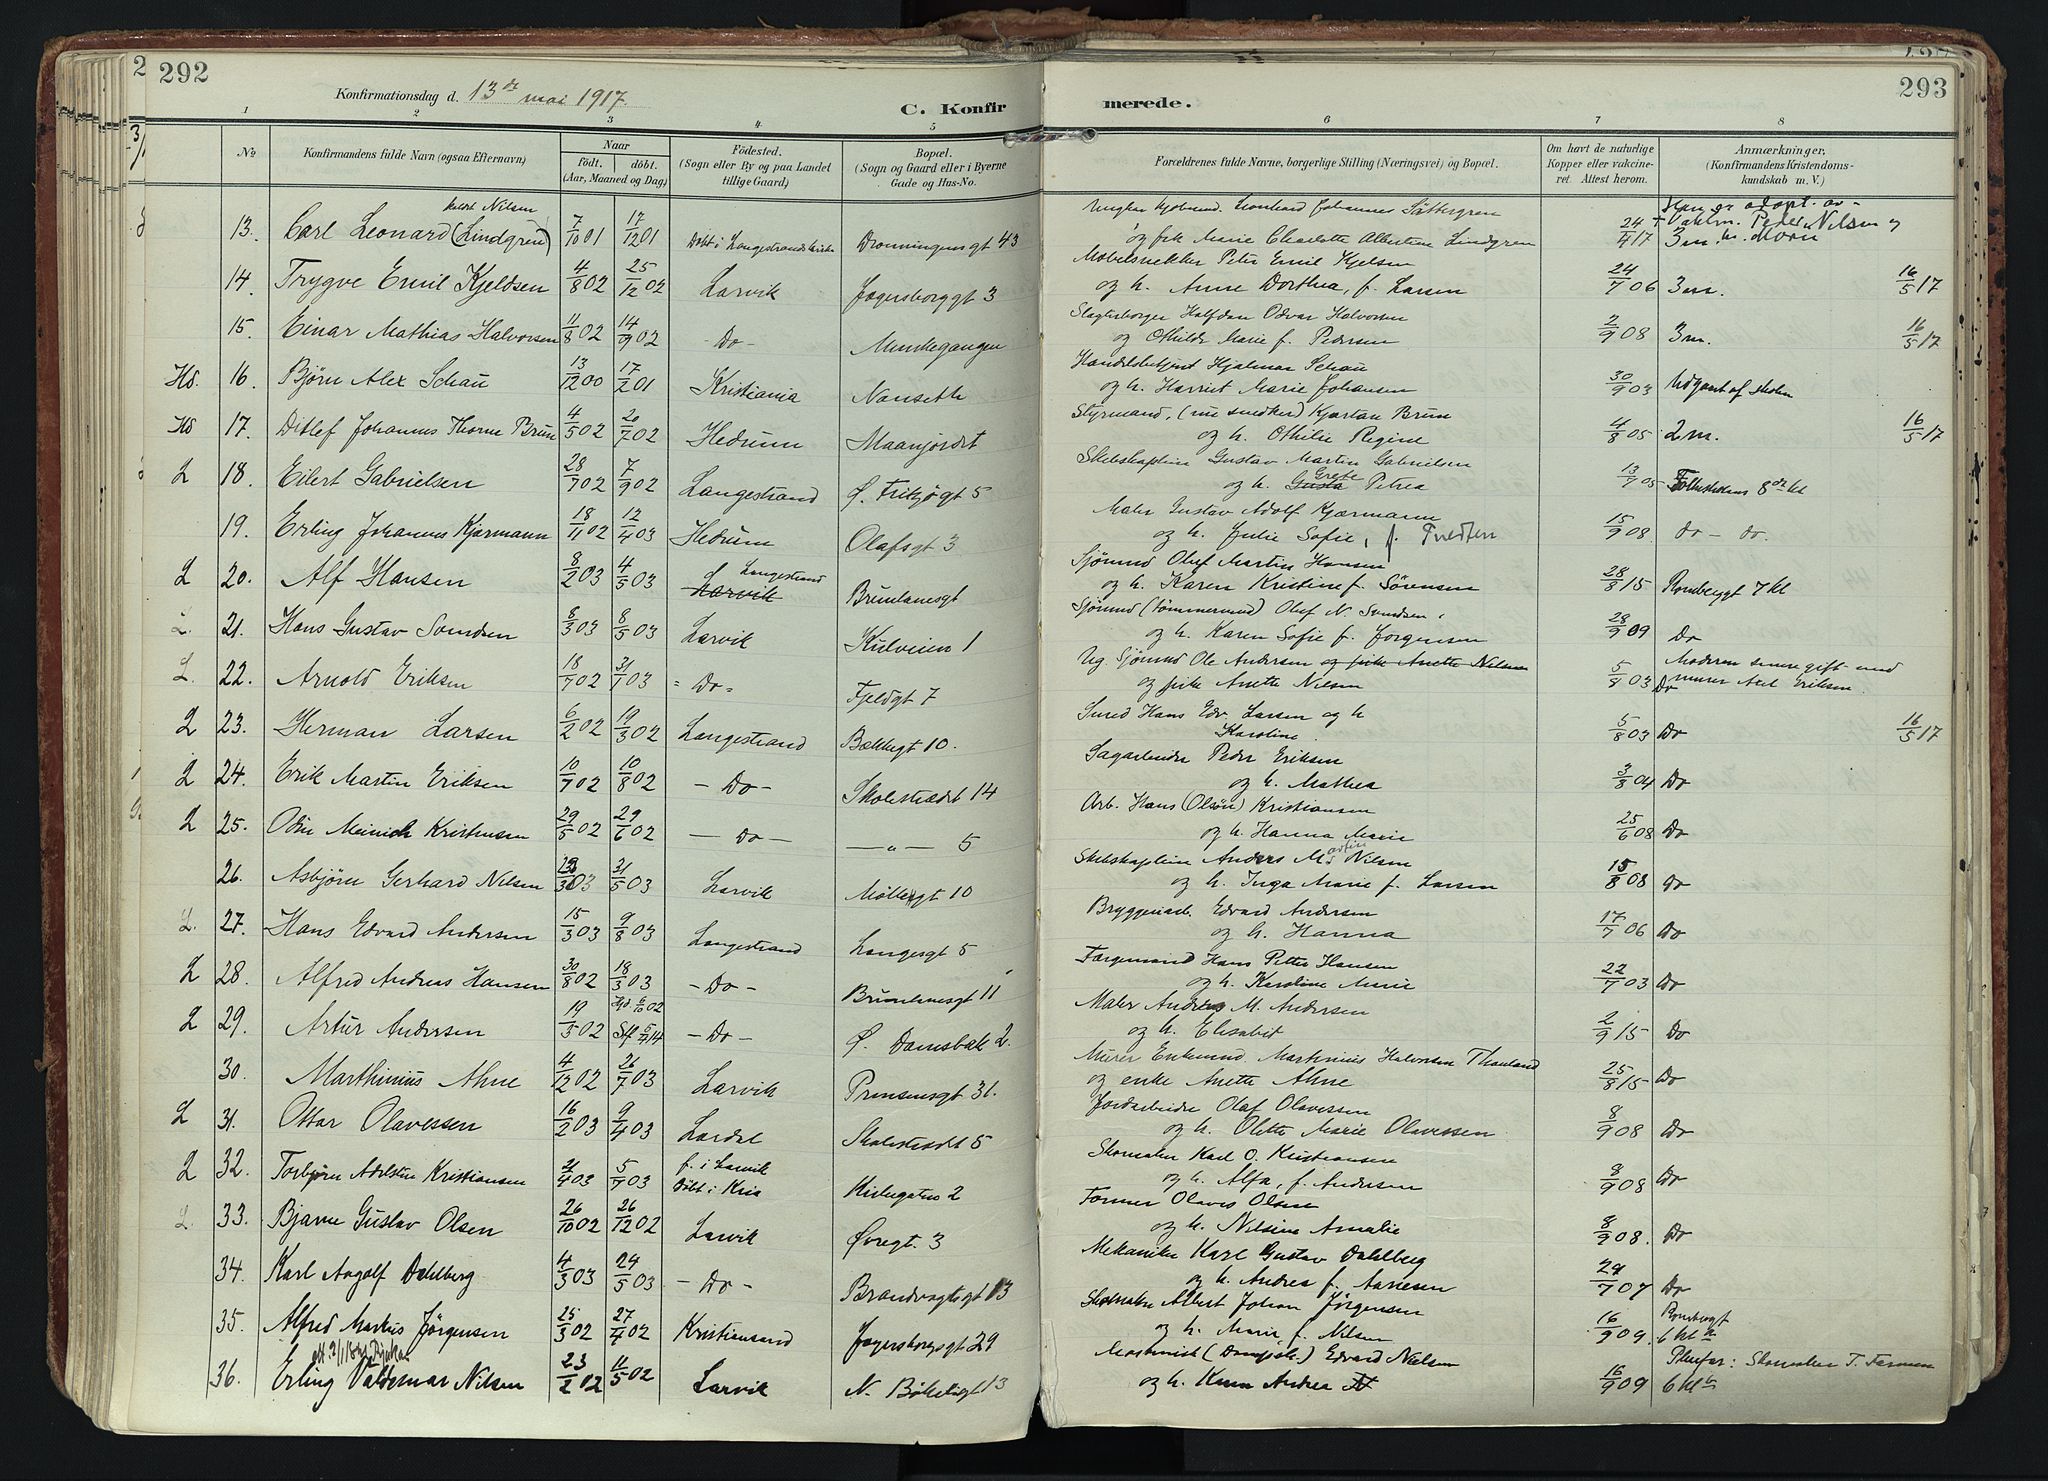 292
Konfirmationsdag d. 13de mai 1917.
C. Konfir
merede.
293
1 2 3 4 5 6 7 8
No
Konfirmandens fulde Navn (ogsaa Efternavn)
Naar
født. døbt.
(Aar, Maaned og Dag)
Fødested.
(Sogn eller By og paa Landet
tillige Gaard)
Bopæl.
(Sogn og Gaard eller i Byerne
Gade og Hus-No.
Forældrenes fulde Navne, borgerlige Stilling (Næringsvei) og Bopæl.
Om havt de naturlige
Kopper eller vakcine-
ret. Attest herom.
Anmærkninger.
(Konfirmandens Kristendoms-
kundskab m. V.)
kaldet Nilsen
13. Carl Leonard (Lindgren) 7/10 01 17/12 01 Døbt i Langestrands kirke Dronningensgt 43
Johannes
og pik Marie Charlotte Albertine Lindgren 24/4 17 3 m.
Han er adopt. av
Peder Nilsen
14. Trygve Emil Kjeldsen 4/8 02 25/12 02 Larvik Jegersborggt 3
Møbelsnekker Peter Emil Kjelsen
og h. Anne Dorthea, f. Larsen 24/7 06 3 m. 16/5 17
15. Einar Mathias Halvorsen 11/8 02 14/9 02 Do- Munkegangen
Halfdan Odvar Halvorsen
og Othilde Marie f. Pedersen 2/9 08 3 m. 16/5 17
Hd. 16. Bjørn Alex Schau 13/12 00 17/2 01 Kristiania Nanseth
Handelsbetjent Hjalmar Schau
og h. Harriet Marie Johansen 30/9 03 Udgaat af skolen
Hd 17. Ditlef Johannes Thorne Brun 4/5 02 20/7 02 Hedrum Maanejordet
Styrmand, (nu snedker) Kjartan Brun
og h. Othilie Regine 4/8 05 2 m. 16/5 17
L 18. Eilert Gabrielsen 28/7 02 7/9 02 Langestrand Ø. Fritzøgt 5
Skibskaptein Gustav Martin Gabrielsen
og h. Gusta Grete Petrea 13/9 05 Folkeskolens 8de kl
19. Erling Johannes Kjærmann 18/11 02 12/4 03 Hedrum Olafsgt 3
Maler Gustav Adolf Kjærmann
og h. Julie Sofie, f. Tvedten 15/9 08 do - do.
L 20. Alf Hansen 8/2 03 4/5 03 Larvik Langestrand Brunlanesgt
Sjømnd Oluf Martin Hansen
og h. Karen Kristine f. Sørensen 28/8 15 Rombergt 7 kl
L. 21. Hans Gustav Svendsen 8/3 03 8/5 03 Larvik Kulveien 1
Sjømnd (Tømmermand) Oluf N. Svendsen,
og h. Karen Sofie f. Jørgensen 28/9 09 Do
L. 22. Arnold Eriksen 18/7 02 31/1 03 - Do - Fjeldgt 7
Ug. Sjømnd Ole Andersen og pike Anette Nilsen
og pike Anette Nilsen 5/8 03 Do
Moderen senere gift med
murer Axel Eriksen.
L 23. Herman Larsen 6/2 02 19/3 02 Langestrand Bækkegt 10.
Smed Hans Edv. Larsen og h
Karoline 5/8 03 Do 16/5 17
L 24. Erik Martin Eriksen 10/7 02 10/8 02 - Do - Skolestrædet 14
Sagarbeider Peder Eriksen
og h. Mathea 3/8 04 Do
L 25. Odin Meinich Kristensen 29/5 02 29/6 02 - Do - -"- 5
Arb. Hans (Olsøn) Kristiansen
og h. Hanna Marie 25/6 08 Do
26. Asbjørn Gerhard Nilsen 31/5 03 Larvik Møllegt 10
Skibskaptein Anders Martin Nilsen
og h. Inga Marie f. Larsen 15/8 08 do
L. 27. Hans Edvard Andersen 15/3 03 9/8 03 Langestrand Langesgt 5
Bryggeriarb. Edvard Andersen
og h. Hanna 17/7 06 Do
L 28. Alfred Andreas Hansen 30/8 02 18/3 03 - Do - Brunlanesgt 11
Færgemand Hans Petter Hansen
og h. Karoline Marie 22/7 03 Do
L 29. Artur Andersen 19/3 02 - Do - Ø. Damsbak 2.
Maler Andreas M. Andersen
og h. Elisabet 2/9 15 Do
30. Marthinius Ahne 4/12 02 26/7 03 Larvik Prinsensgt 31.
Murer Enkemnd Martinius Halvorsen Thauland
og enke Anette Ahne 25/8 15 Do
L 31. Ottar Olavessen 16/2 03 9/4 03 Lardal Skolestrædet 5
Jordarbeider Olaf Olavessen
og h. Olette Marie Olavessen 8/9 08 Do
L 32. Torbjørn Adelsten Kristiansen 2/4 03 5/7 03 f. i Larvik
Døbt i Kria Kirkegaten 2
Skomaker Karl O. Kristiansen
og h. Alfa, f. Andersen 8/9 08 Do
L 33. Bjarne Gustav Olsen 26/10 02 26/12 02 Larvik Øvregt. 3
Former Olaves Olsen
og h. Nilsine Amalie 8/9 08. Do
34. Karl Angolf Dahlberg 4/3 03 24/5 03 - Do - Brandvagtsgt 13
Mekaniker Karl Gustav Dahlberg
og h. Andrea f. Aariesen 29/7 07 Do
35. Alfred Markus Jørgensen 25/3 02 27/4 02 Kristiansand Jegersborgsgt 29
Skomaker Albert Johan Jørgensen
og h. Marie, f. Nilsen 16/9 09. Rombergt
6 kl
36. Erling Valdemar Nilsen 23/2 02 11/5 02 Larvik N. Bøkeligt 13
Maskinist (Dampsk.) Edvard Nielsen
og h. Andrea 16/9 09 6 kl
Pleiefar: Skomaker T. Farmen